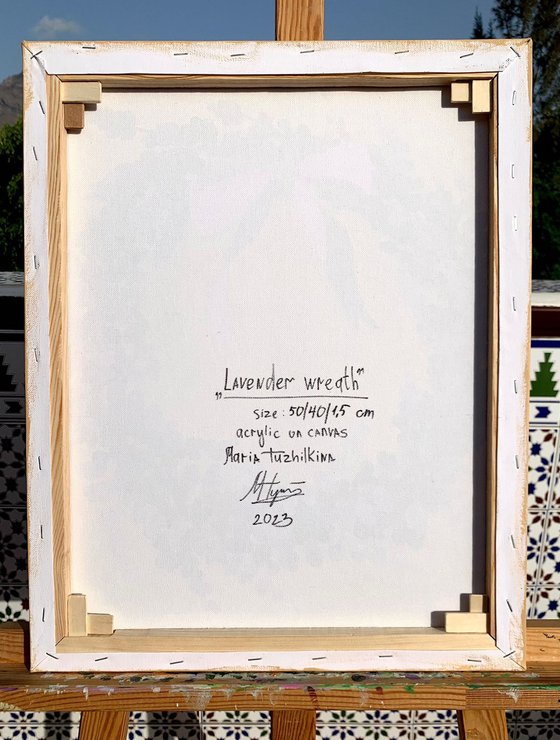 „Lavender wreath"
size: 50/40/1,5 cm
acrylic on canvas
Maria Tuzhilkina
2023